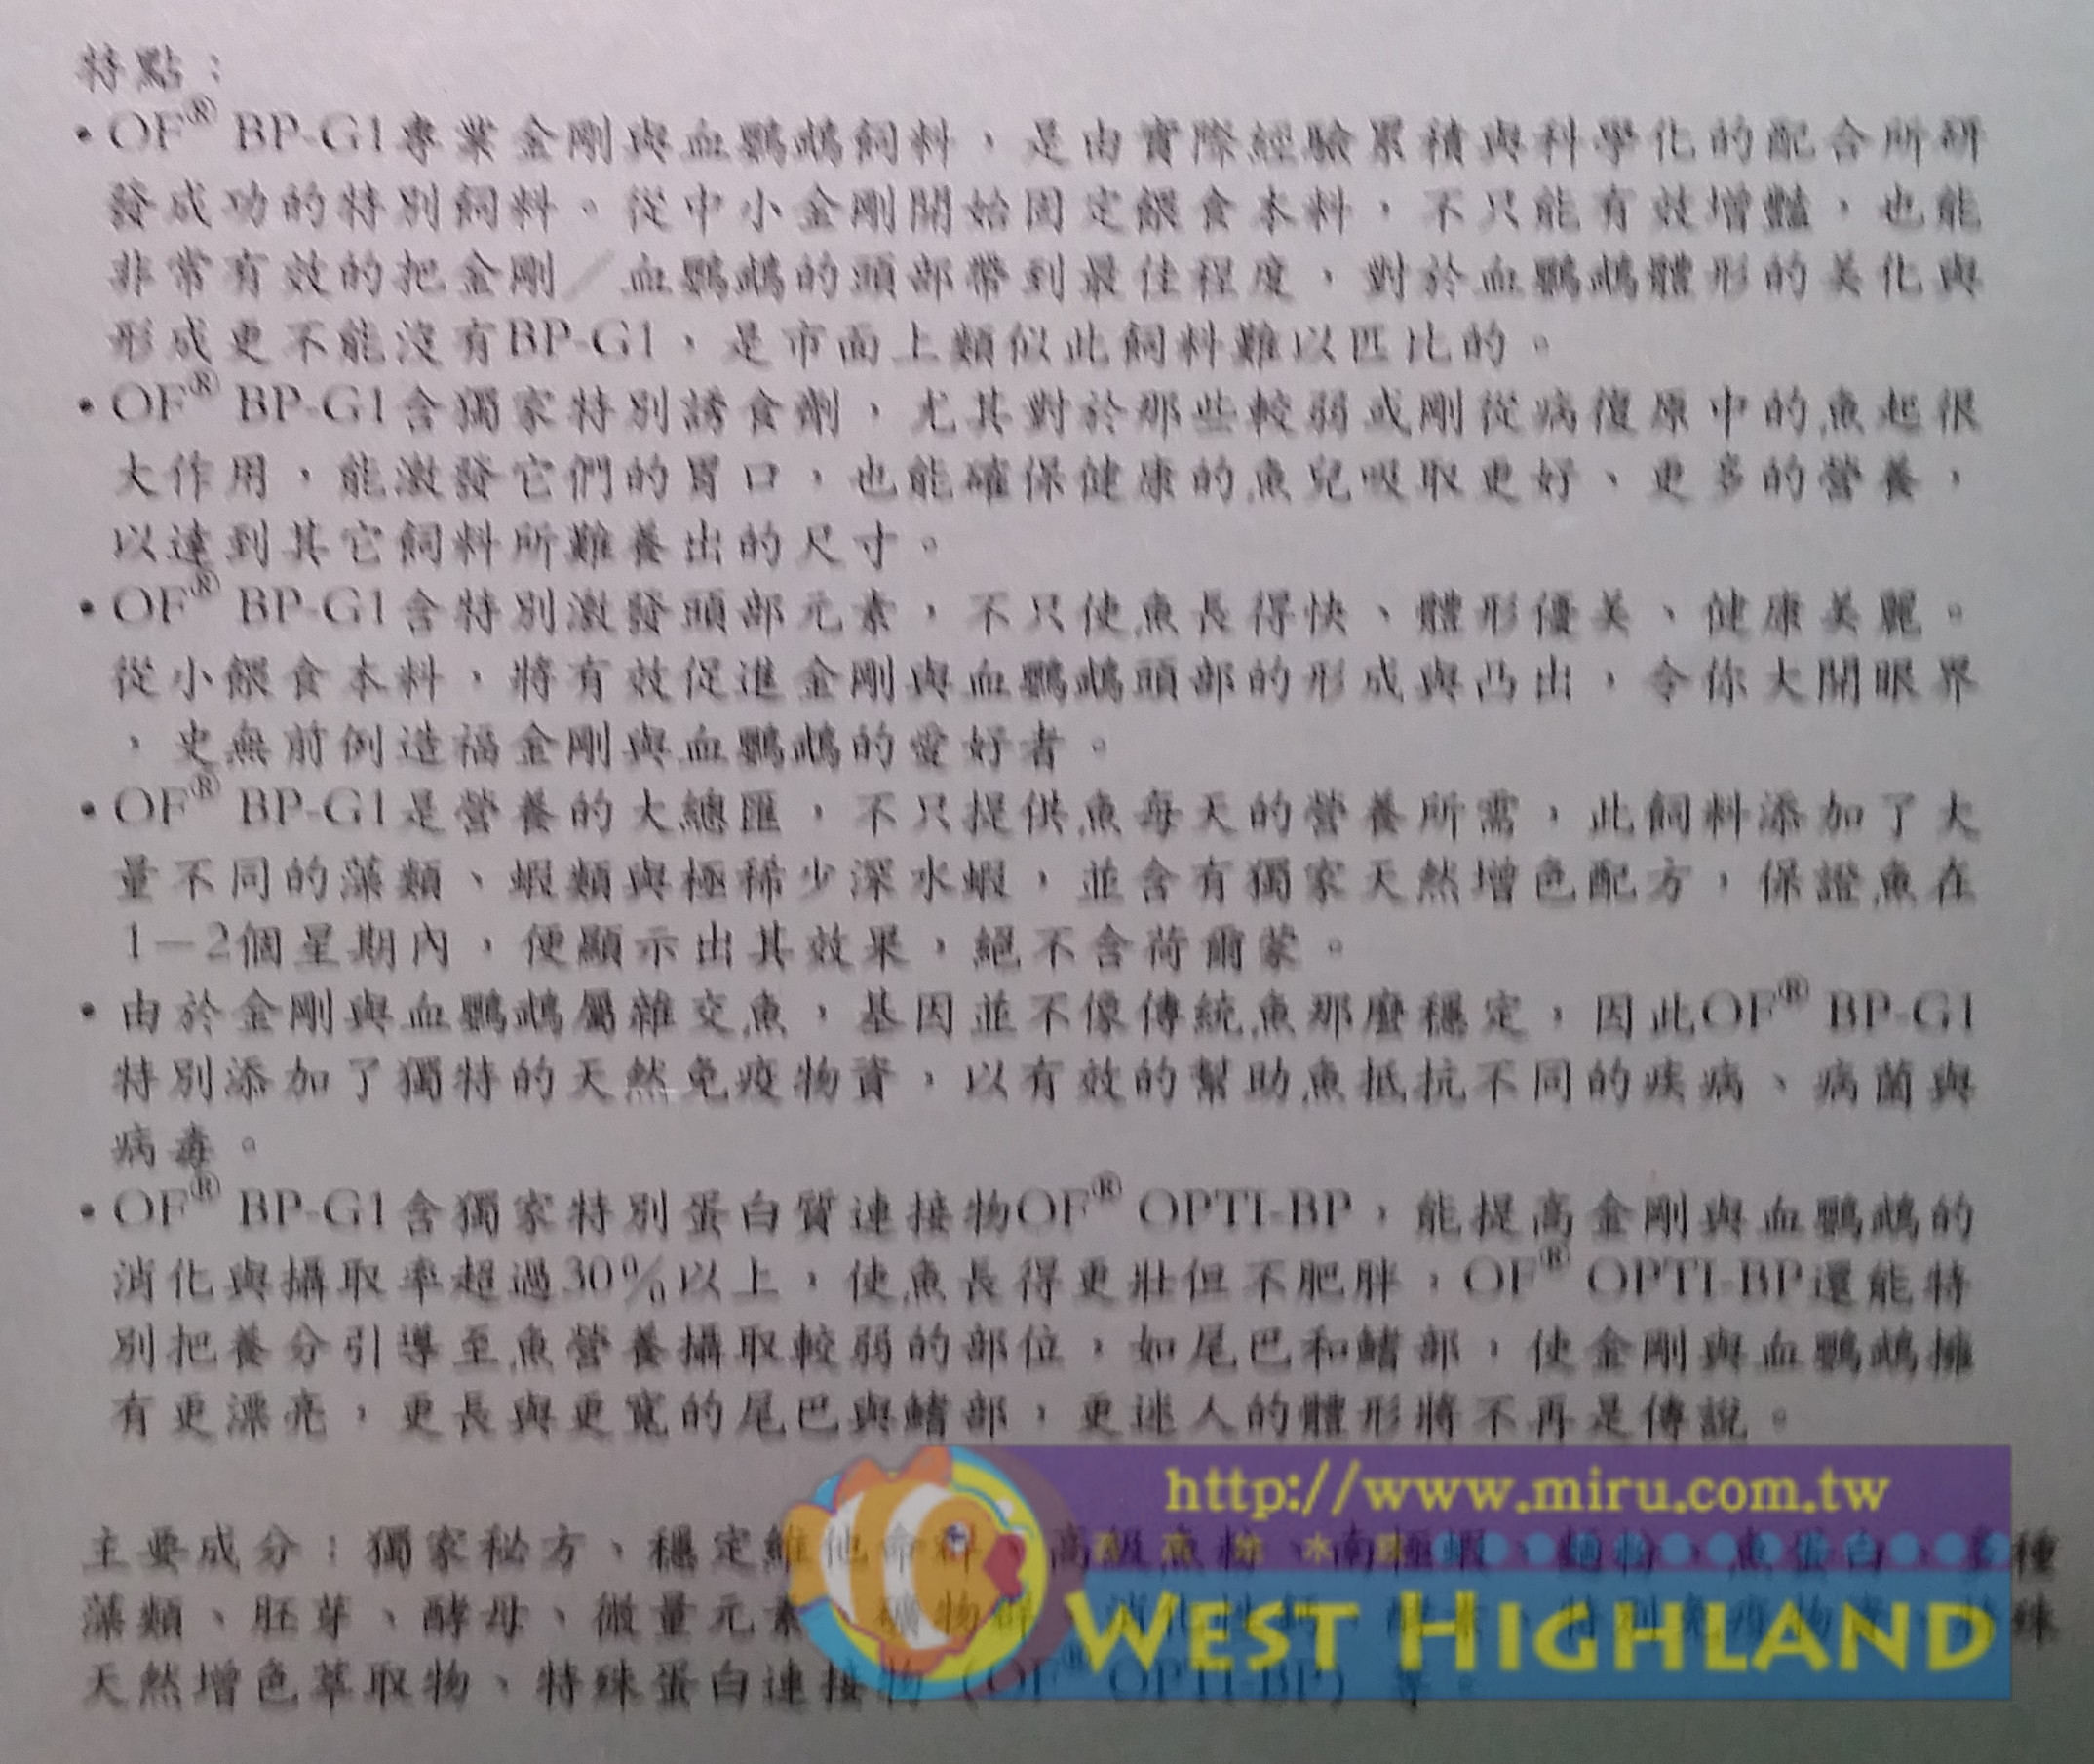 特點：
•OF® BP-G1專業金剛與血鸚鵡飼料，是由實際經驗累積與科學化的配合所研
發成功的特別飼料。從中小金剛開始固定餵食本料，不只能有效增豔，也能
非常有效的把金剛／血鸚鵡的頭部帶到最佳程度，對於血鸚鵡體形的美化與
形成更不能沒有BP-G1，是市面上類似此飼料難以匹比的。
•OF® BP-G1含獨家特別誘食劑，尤其對於那些較弱或剛從病復原中的魚起很
大作用，能激發它們的胃口，也能確保健康的魚兒吸取更好、更多的營養，
以達到其它飼料所難養出的尺寸。
•OF® BP-G1含特別激發頭部元素，不只使魚長得快、體形優美、健康美麗。
從小餵食本料，將有效促進金剛與血鸚鵡頭部的形成與凸出，令你大開眼界
，史無前例造福金剛與血鸚鵡的愛好者。
•OF® BP-G1是營養的大總匯，不只提供魚每天的營養所需，此飼料添加了大
量不同的藻類、蝦類與極稀少深水蝦，並含有獨家天然增色配方，保證魚在
1－2個星期內，便顯示出其效果，絕不含荷爾蒙。
•由於金剛與血鸚鵡屬雜交魚，基因並不像傳統魚那麼穩定，因此OF® BP-G1
特別添加了獨特的天然免疫物資，以有效的幫助魚抵抗不同的疾病、病菌與
病毒。
•OF® BP-G1含獨家特別蛋白質連接物OF® OPTI-BP，能提高金剛與血鸚鵡的
消化與攝取率超過30%以上，使魚長得更壯但不肥胖，OF® OPTI-BP還能特
別把養分引導至魚營養攝取較弱的部位，如尾巴和鰭部，使金剛與血鸚鵡擁
有更漂亮，更長與更寬的尾巴與鰭部，更迷人的體形將不再是傳說。
http://www.miru.com.tw
主要成分：獨家秘方、穩定維他命群、高級魚粉、南極蝦、麵粉、魚蛋白、多種
藻類、胚芽、酵母、微量元素、礦物群、特別免疫物資、特殊
WEST HIGHLAND
天然增色萃取物、特殊蛋白連接物（OF® OPTI-BP）等。